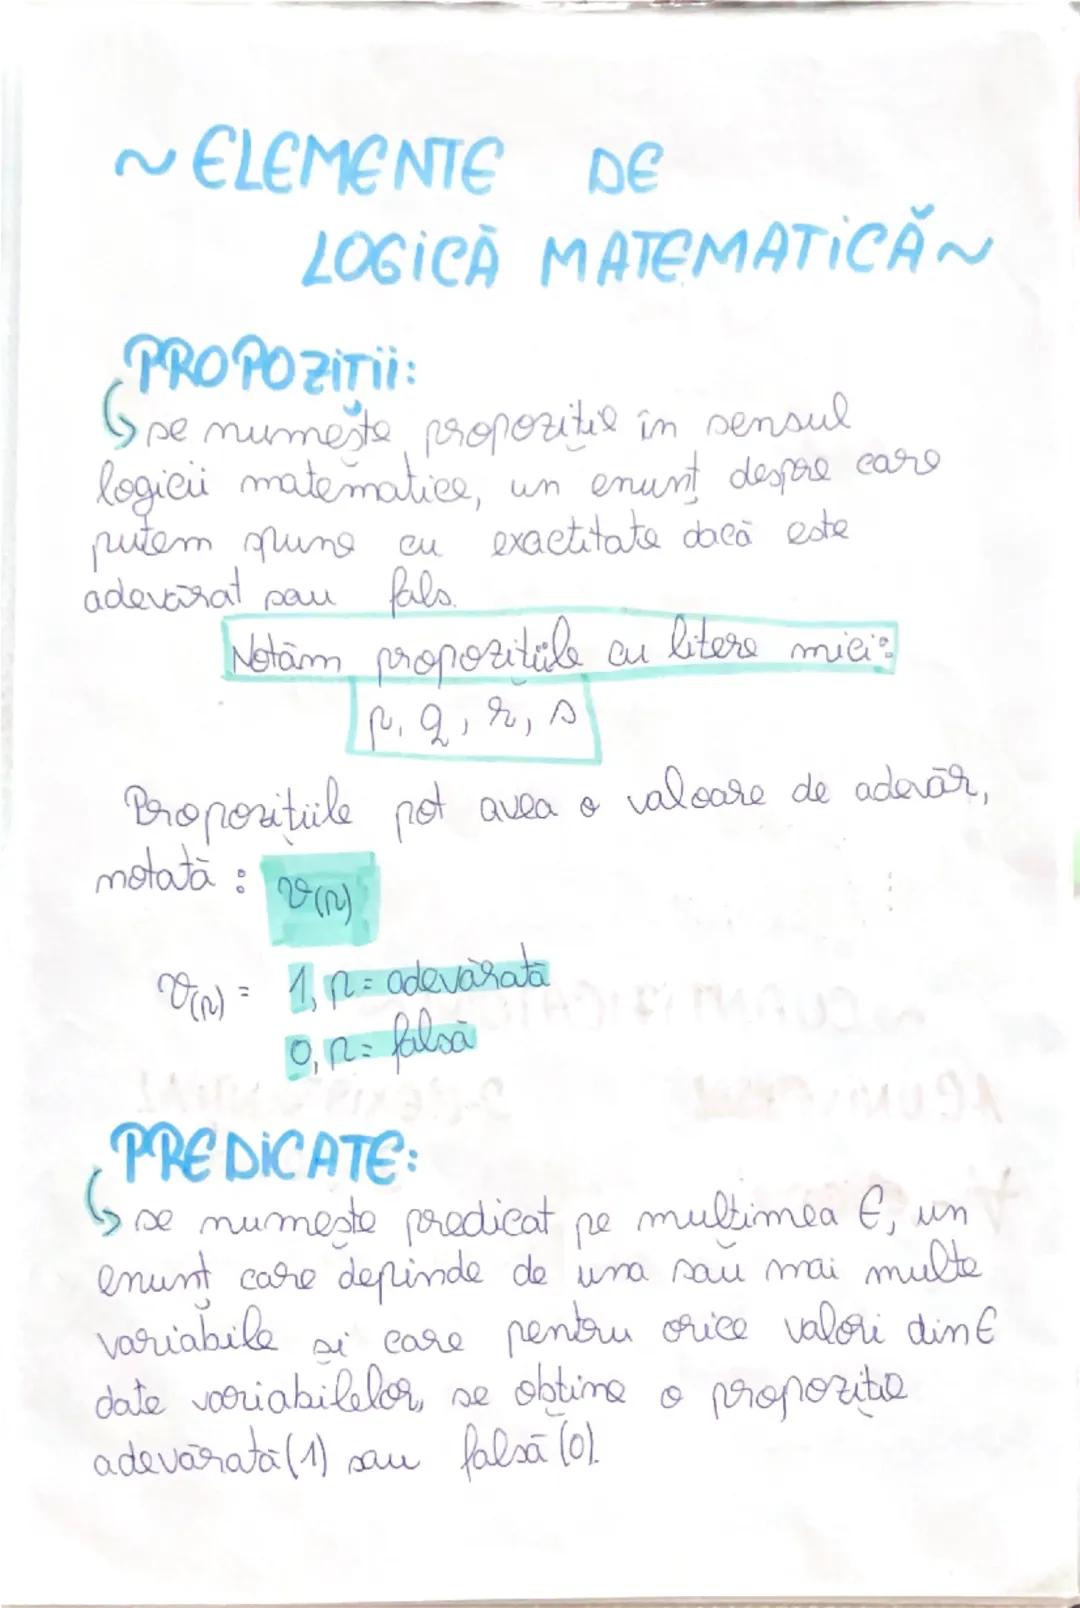 ~ ELEMENTE DE
LOGICĂ MATEMATICĂ ~
PROPOZIȚII:
se numește propoziție în sensul
logicii matematice, un enunț despre care
putem spune cu exactitate dacă este
adevărat sau fals.
Notăm propozițiile cu litere mici:
p, q, r, s
Propozițiile pot avea o valoare de adevăr,
notată : v(p)
v(p) = 1, p = adevărată
0, p = falsă
PREDICATE:
se numește predicat pe mulțimea E, un
enunț care depinde de una sau mai multe
variabile și care pentru orice valori din E
date variabilelor, se obține o propoziție
adevărată (1) sau falsă (0).